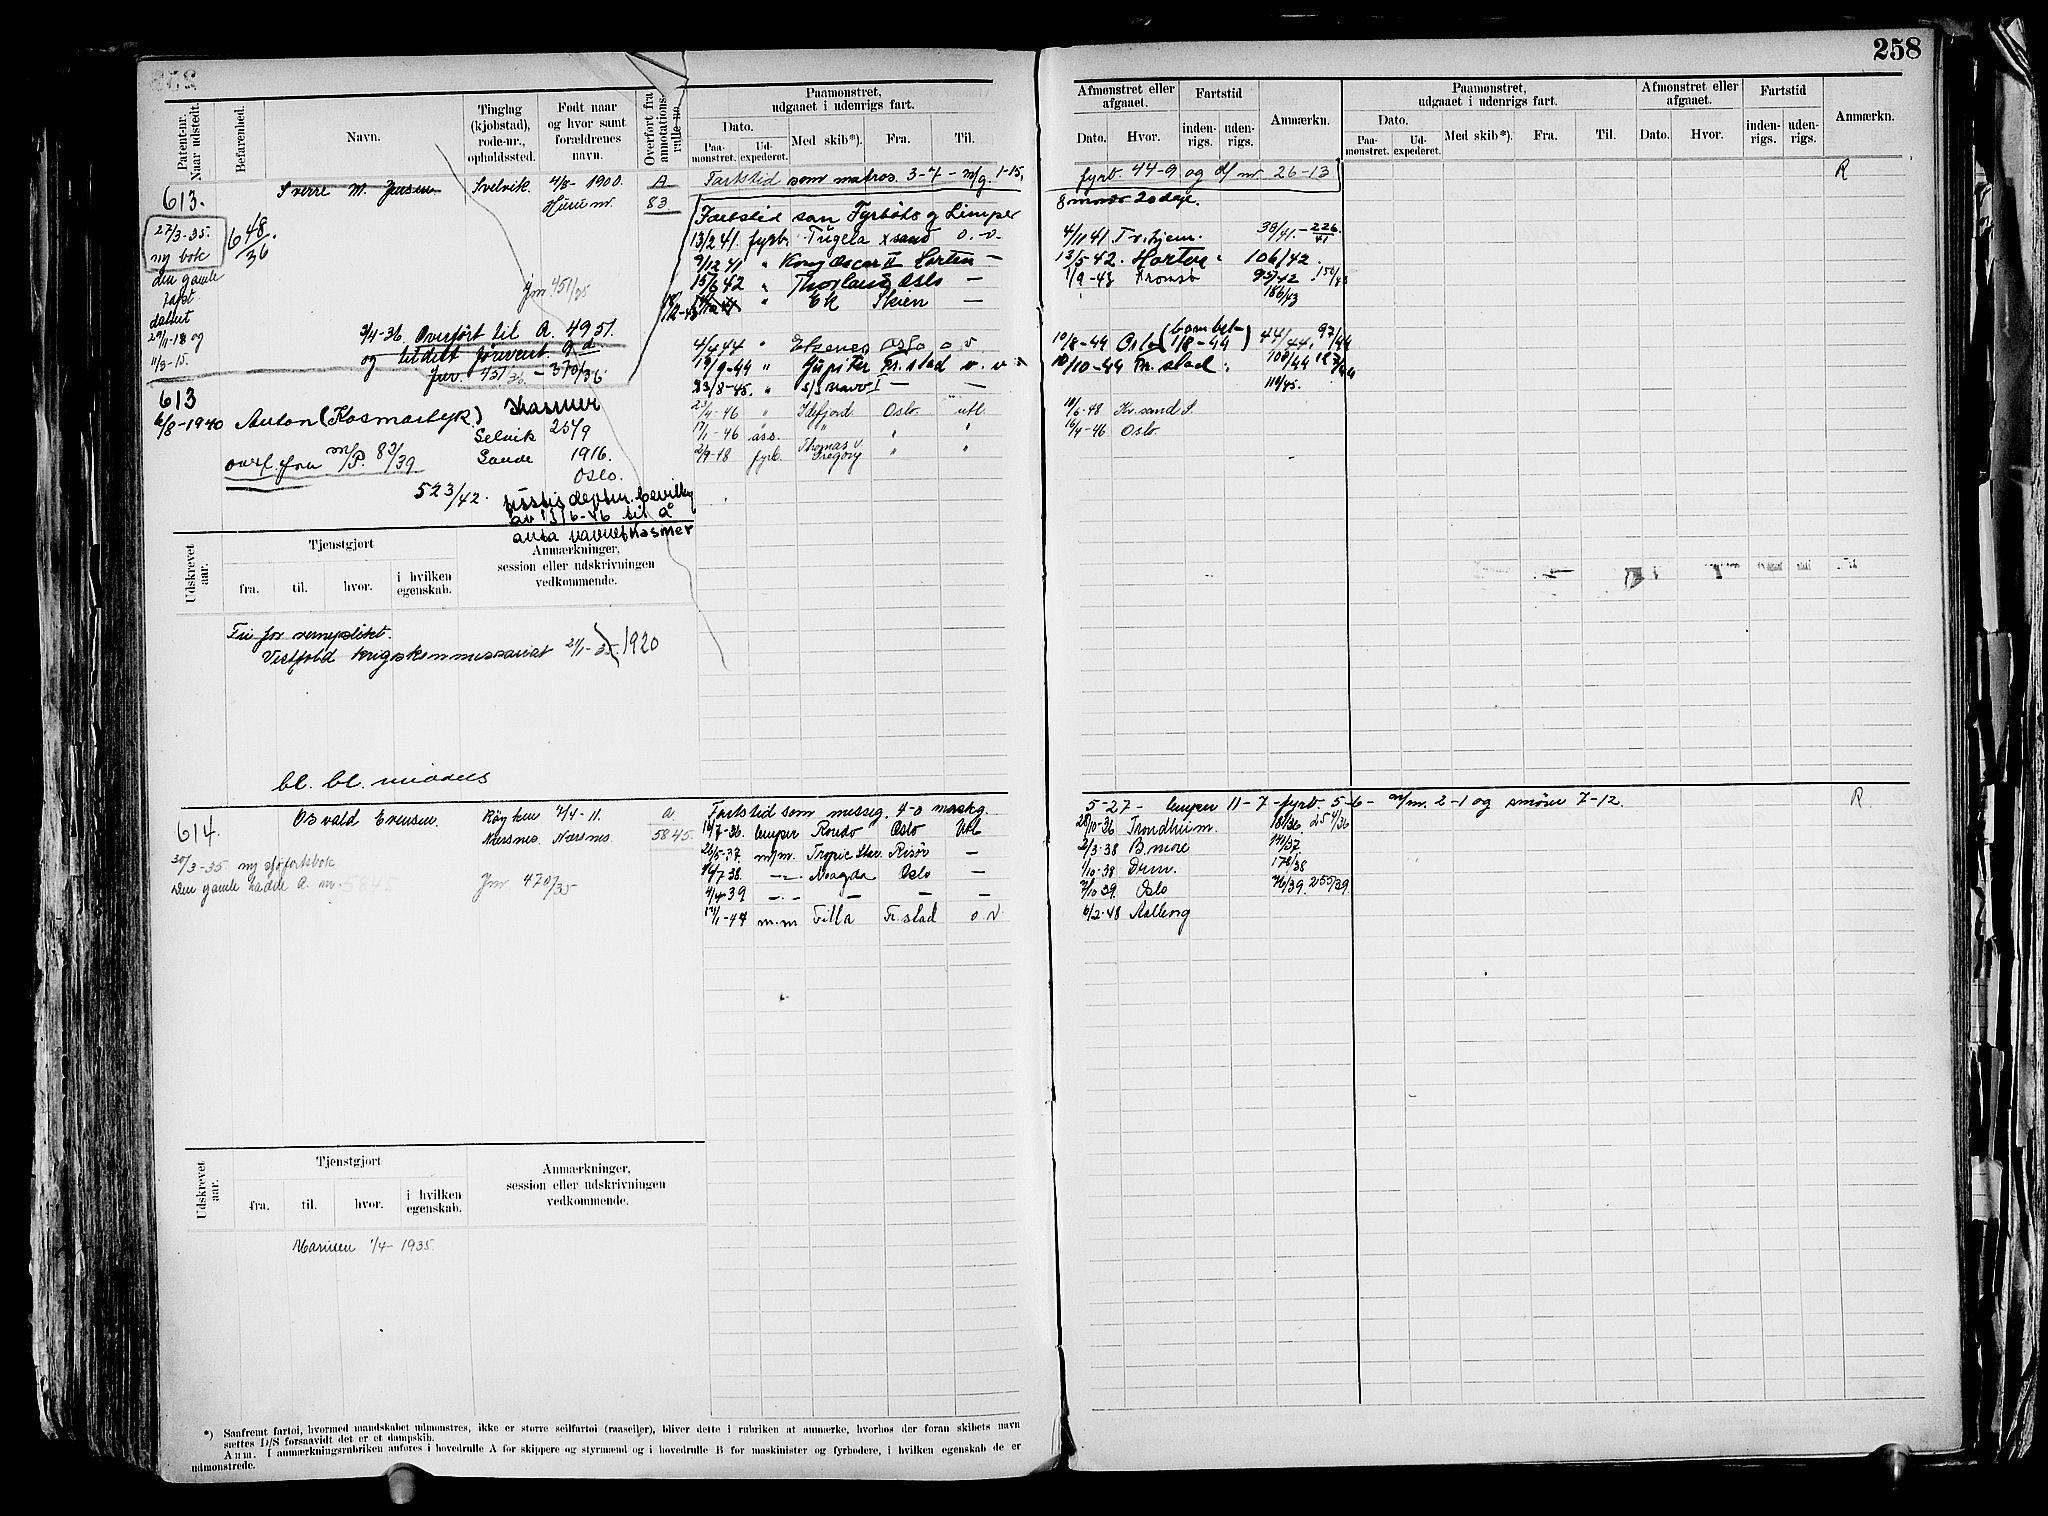 258
Patent-nr. Naar udstedt.
Befarenhed.
Navn.
Tinglag (kjøbstad), rode-nr., opholdssted.
Født naar og hvor samt forældrenes navn.
Overført fra annotations-rulle-no.
Paamønstret, udgaaet i udenrigs fart.
Dato.
Paa-mønstret.
Ud-expederet.
Med skib*).
Fra.
Til.
Afmønstret eller afgaaet.
Dato.
Hvor.
Fartstid
inden-rigs.
uden-rigs.
Anmærkn.
Paamønstret, udgaaet i udenrigs fart.
Dato.
Paa-mønstret.
Ud-expederet.
Med skib*).
Fra.
Til.
Afmønstret eller afgaaet.
Dato.
Hvor.
Fartstid
inden-rigs.
uden-rigs.
Anmærkn.
613. Sverre M. Jensen Svelvik 4/8-1900. A Fartstid som matros. 3-7- m/g. 1-15, fyrb. 44-9 og 26-13 R
Hurum. 83
27/3-35. ny bok
648/36
den gamle tapt
datert
29/11-18 og
11/3-15.
Jnr 451/35
3/4-36 Overført til A. 4951.
og tildelt
Jnr. 431/36 - 370/36
Fartstid som Fyrbøter og Lemper 8 mndr 20 dage.
13/2 41. fyrb. Tugela Kr sand o. v. 4/11 41 Tr.hjem. 38/41-226/41
9/12 41 " Kong Oscar II Horten - 13/5-42. Horten 106/42.
15/6 42 " Thorland Oslo - 1/9-43 Tromsø 95/42
186/43
" Ek Skien -
4/4 44 " Eksnes Oslo o v 10/8-44 Oslo (bombet 1/8-44) 44/44. 97/44
19/9-44 " Jupiter Fr.stad o. v. 10/10-44 Fr. stad 108/44
23/8-45. " - - 110/45.
23/4-46 " Idefjord Oslo utl. 10/6-48 Kr. sand S.
17/1-46 ass. " " " 16/4-46 Oslo.
2/9-48 fyrb. Thomas v Gregory " "
613
6/8-1940 Anton (Kosmartyk) Kasmer
Selvik 25/9
overf. fra m/P. 83/39 Sande 1916.
Oslo.
523/42. justis deptm. bevilling
av 13/6-46 til å
anta navnet Kasmer
Udskrevet aar.
Tjenstgjort
fra.
til.
hvor.
i hvilken egenskab.
Anmærkninger, session eller udskrivningen vedkommende.
Fri for verneplikt.
Vestfold krigskommissariat 21/1-35. 1920
bl. bl. middels
614 Osvald Evensen Røyken 4/4-11. A. Fartstid som messeg. 4-0 maskg. 5-27- lemper 11-7-fyrb. 5-6- m/m. 2-1 og smører 7-12. R
Nærsnes Nærsnes 5845
30/3-35 ny sjøfartsbok
Den gamle hadde A. nr. 5845 Jnr 470/35
14/7-36. lemper Rondo Oslo Utl 28/10-36 Trondheim. 181/36. 254/36
26/5-37. m/m. Tropic Star Risør - 2/3-38 B.more 141/37
Magda Oslo - 1/10-38 Drm. 178/38
4/4-39 -.- - - - 2/10 39. Oslo 76/39. 255/39.
m.m Filla Fr.stad o.v 6/2-48 Aalborg
Udskrevet aar.
Tjenstgjort
fra.
til.
hvor.
i hvilken egenskab.
Anmærkninger, session eller udskrivningen vedkommende.
Marinen 1/4-1935.
*) Saafremt fartøi, hvormed mandskabet udmønstres, ikke er større seilfartøi (raaseiler), bliver dette i rubriken at anmærke, hvorhos der foran skibets navn
sættes D/S forsaavidt det er et dampskib.
Anm. I anmærkningsrubriken anføres i hovedrulle A for skippere og styrmænd og i hovedrulle B for maskinister og fyrbødere, i hvilken egenskab de er
udmønstrede.